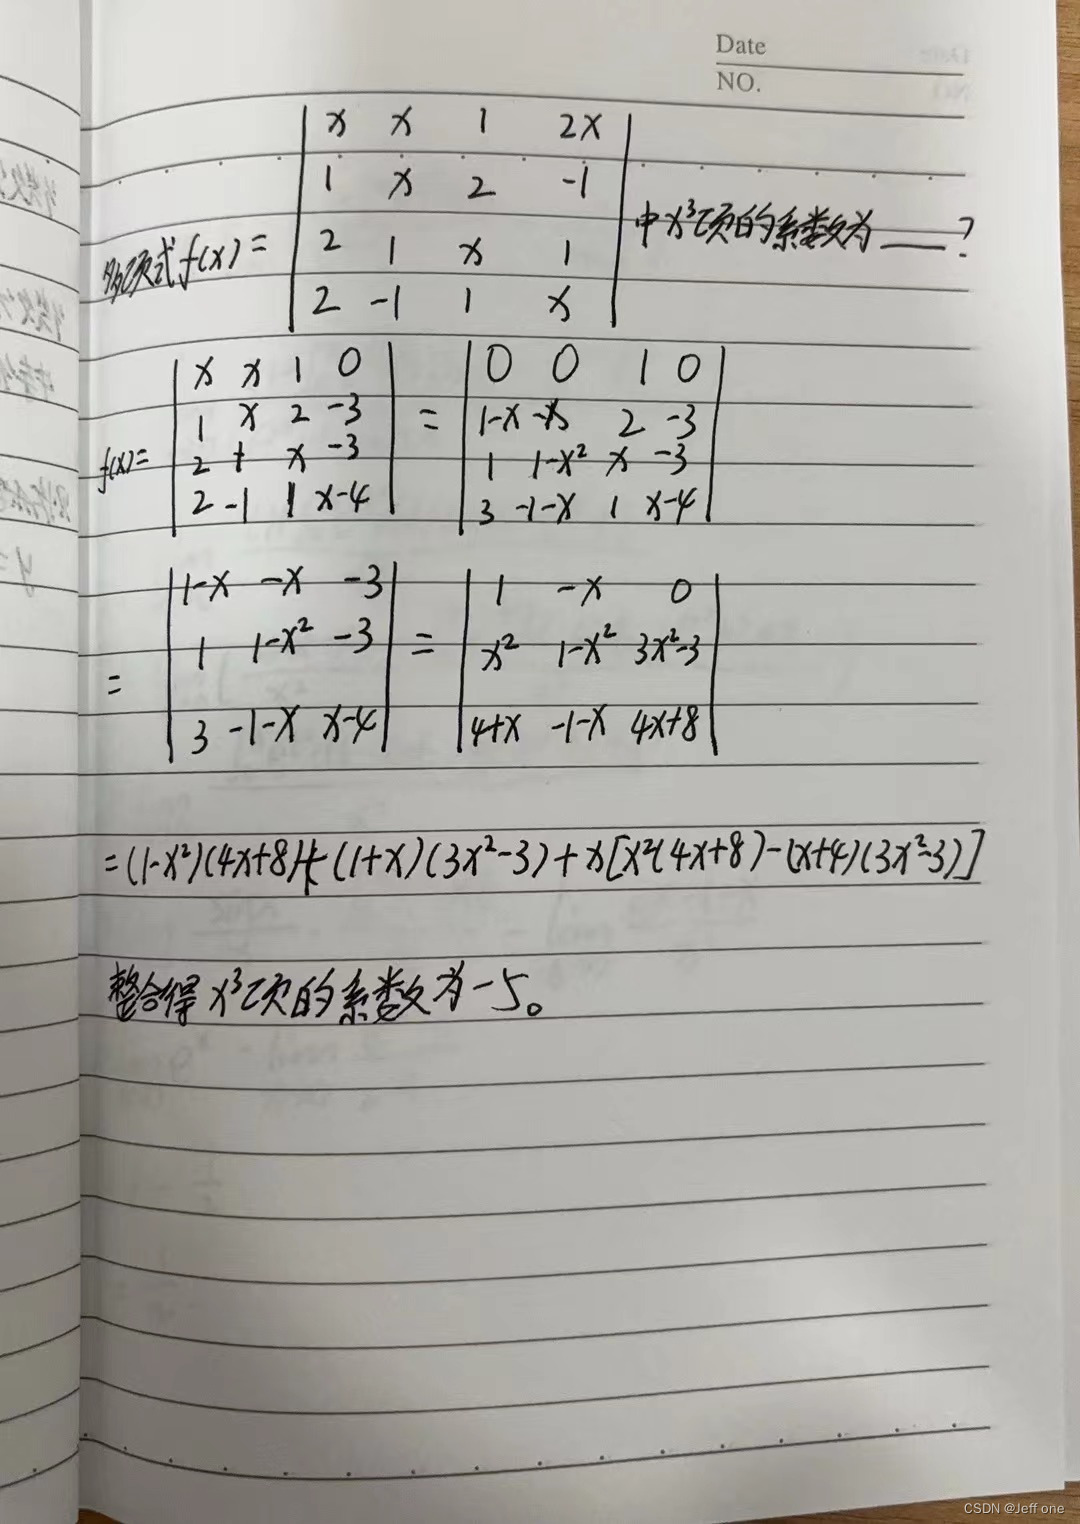 Date
NO.
多项式f(x)= | x x 1 2x |
| 1 x 2 -1 |
| 2 1 x 1 |
| 2 -1 1 x | 中x³项的系数为___?
f(x)= | x x 1 0 | = | 0 0 1 0 |
| 1 x 2 -3 | | 1-x -x 2 -3 |
| 2 1 x -3 | | 1 1-x² x -3 |
| 2 -1 1 x-4 | | 3 -1-x 1 x-4 |
= | 1-x -x -3 | = | 1 -x 0 |
| 1 1-x² -3 | | x² 1-x² 3x²-3 |
| 3 -1-x x-4 | | 4+x -1-x 4x+8 |
=(1-x²)(4x+8)+(1+x)(3x²-3)+x[x²(4x+8)-(x+4)(3x²-3)]
整合得x³项的系数为-5。
CSDN @Jeff one